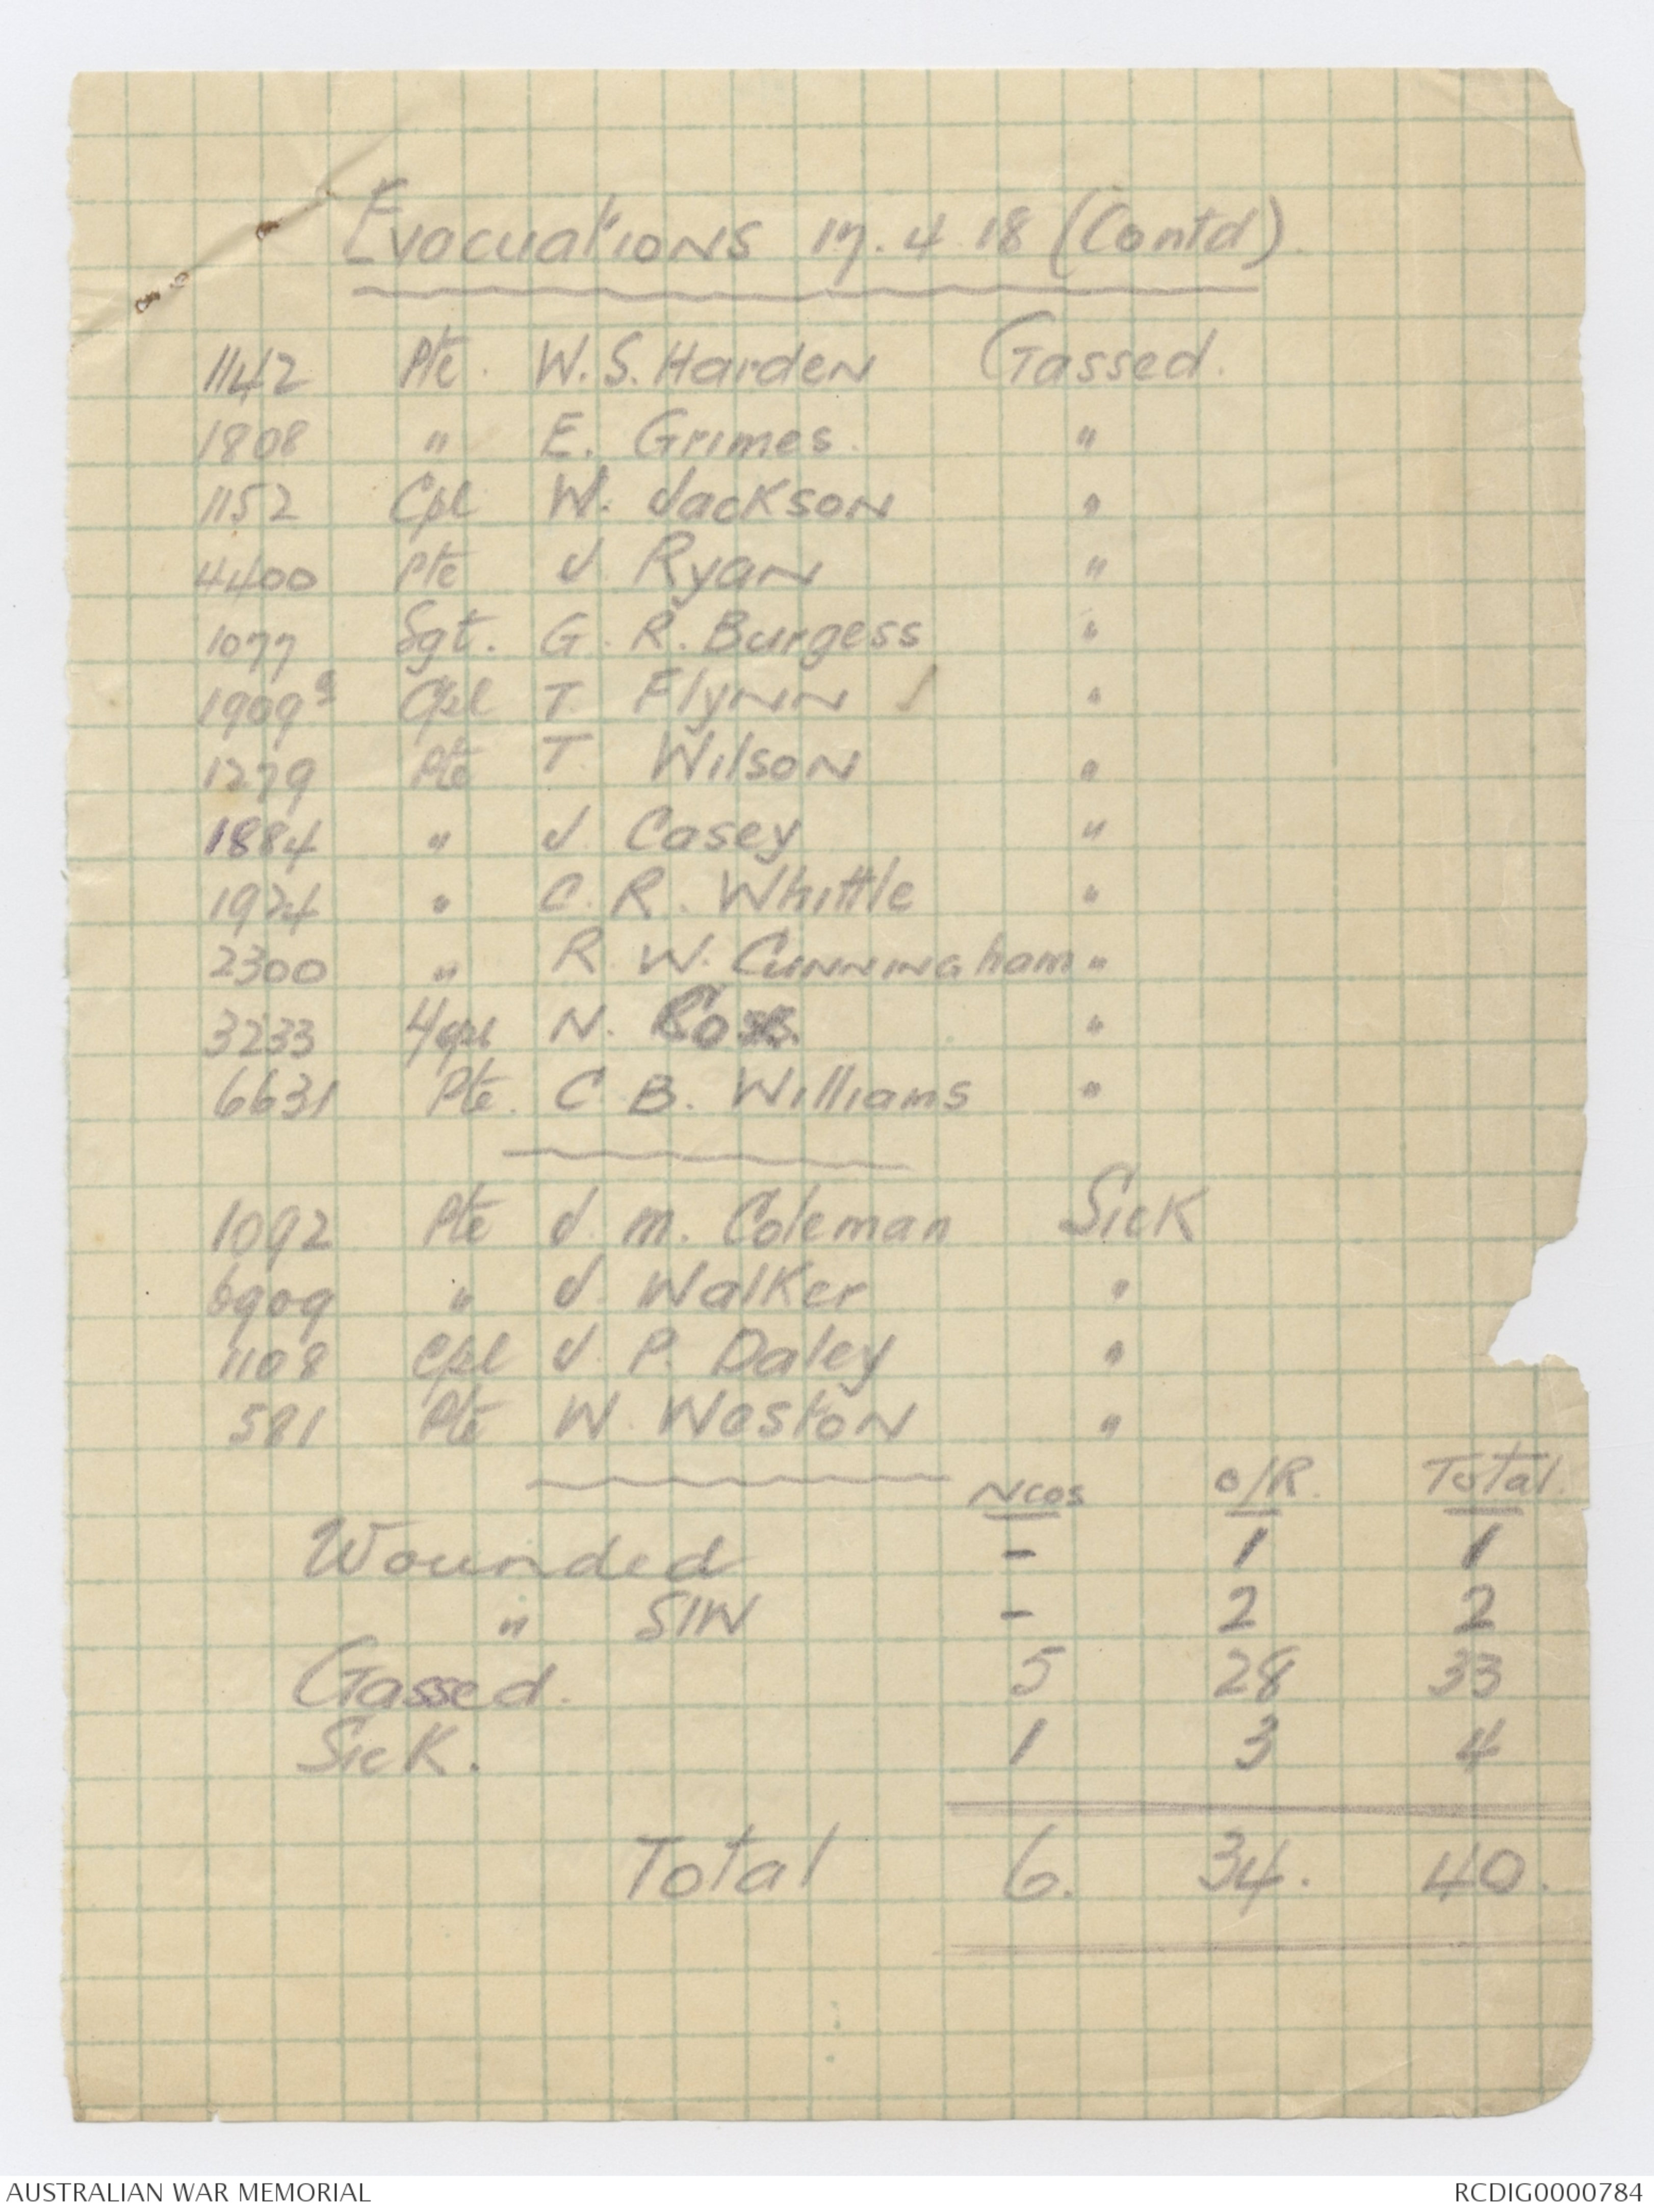 Evacuations 17.4.18 (Contd)
1142 Pte. W.S. Harden Gassed.
1808 " E. Grimes. "
1152 Cpl W. Jackson "
4400 Pte J Ryan "
1077 Sgt. G. R. Burgess "
1909a Cpl T. Flynn "
1279 Pte T. Wilson "
1884 " J Casey "
1924 " C. R. Whittle "
2300 " R W. Cunningham "
3233 L/Cpl N. "
6631 Pte. C. B. Williams "
1092 Pte J. M. Coleman Sick
6909 " J. Walker "
1108 Cpl J. P. Daley "
581 Pte W. Weston "
NCOs O/R. Total.
Wounded - 1 1
" SIW - 2 2
Gassed. 5 28 33
Sick. 1 3 4
Total 6. 34. 40.
AUSTRALIAN WAR MEMORIAL RCDIG0000784